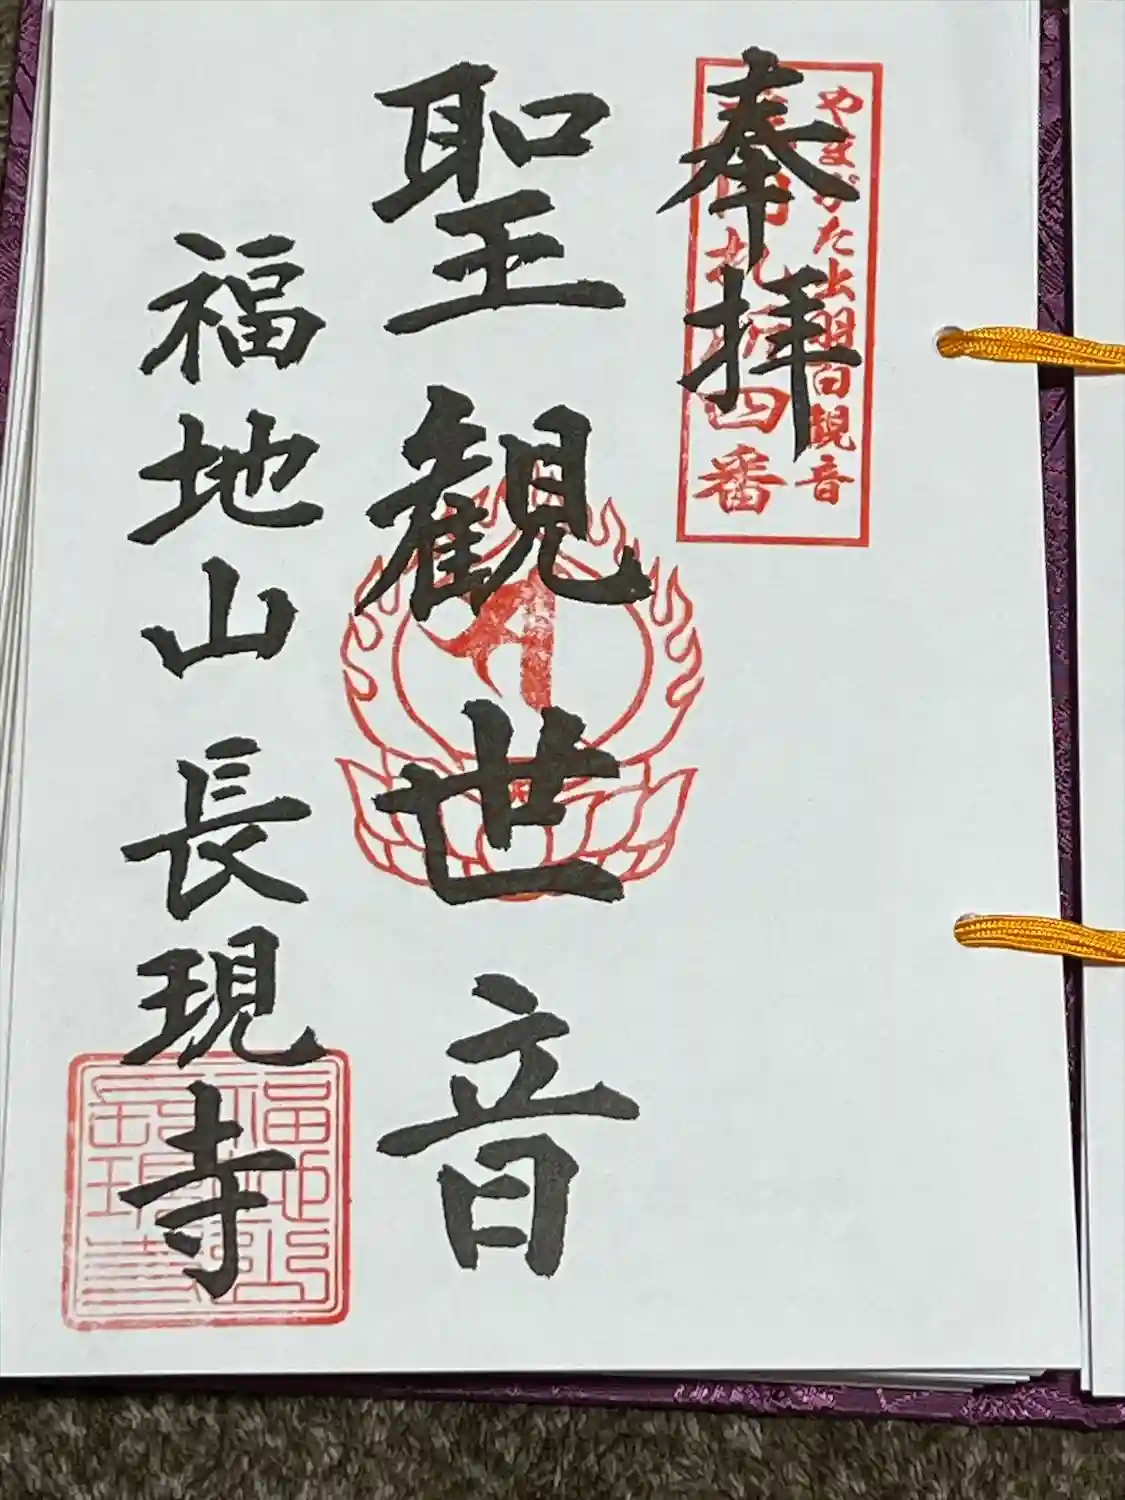 奉拝
やまがた出羽百観音
札所 四番
聖観世音
福地山 長現寺
福地山
長現寺